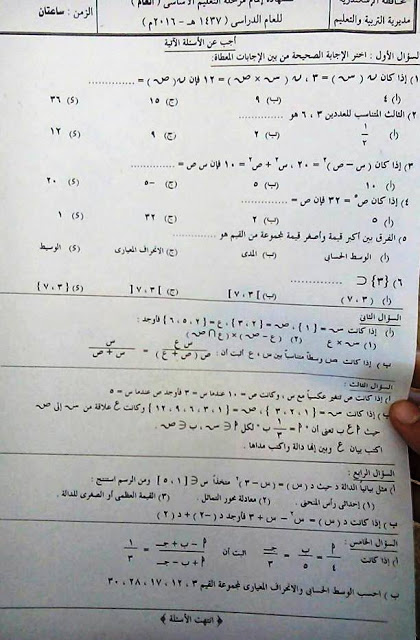 مديرية التربية والتعليم
للعام الدراسى ( ١٤٣٧ هـ - ٢٠١٦ م )
الزمن : ساعتان
أجب عن الأسئلة الآتية
السؤال الأول : اختر الإجابة الصحيحة من بين الإجابات المعطاة:
١) إذا كان ن ( س ) = ٣ ، ن ( س × ص ) = ١٢ فإن ن ( ص ) = ............
(أ) ٤ (ب) ٩ (ج) ١٥ (د) ٣٦
٢) الثالث المتناسب للعددين ٣ ، ٦ هو ............
(أ) ١/٢ (ب) ٢ (ج) ٩ (د) ١٢
٣) إذا كان ( س - ص )٢ = ٢٠ ، س٢ + ص٢ = ١٠ فإن س ص = ............
(أ) ١٠ (ب) ٥ (ج) -٥ (د) ٢٠
٤) إذا كان ص٥ = ٣٢ فإن ص = ............
(أ) ٥ (ب) ٢ (ج) ٣٢ (د) ١
٥) الفرق بين أكبر قيمة وأصغر قيمة لمجموعة من القيم هو ............
(أ) الوسط الحسابى (ب) المدى (ج) الانحراف المعيارى (د) الوسيط
٦) {٣} ⊂ ............
(أ) (٣ ، ٧) (ب) ]٣ ، ٧] (ج) ]٣ ، ٧[ (د) {٣ ، ٧}
السؤال الثانى
أ) إذا كانت س = {١} ، ص = {٢ ، ٣} ، ع = {٢ ، ٥ ، ٦} فأوجد :
(١) س × ع (٢) (ع - ص) × (ع ∩ ص)
ب) إذا كانت ص وسطاً متناسباً بين س ، ع أثبت أن : س ع / ص ( ص + ع ) = س / س + ص
السؤال الثالث :
أ) إذا كان ص تتغير عكسياً مع س ، وكانت ص = ١٠ عندما س = ٣ فأوجد ص عندما س = ٥
ب) إذا كانت س = {١ ، ٢ ، ٣} ، ص = {١ ، ٣ ، ٦ ، ٩ ، ١٢} وكانت ع علاقة من س إلى ص
حيث أ ع ب تعنى أن " أ = ١/٣ ب " لكل أ ∈ س ، ب ∈ ص .
اكتب بيان ع وبين إنها دالة واكتب مداها .
السؤال الرابع :
أ) مثل بيانياً الدالة د حيث د (س) = (س - ٣)٢ متخذاً س ∈ [١ ، ٥] ومن الرسم استنتج :
(١) إحداثى رأس المنحنى . (٢) معادلة محور التماثل . (٣) القيمة العظمى أو الصغرى للدالة .
ب) إذا كانت د (س) = س٢ - س + ٣ فأوجد د (-٢) + د (٢)
السؤال الخامس :
أ) إذا كانت أ/٤ = ب/٥ = جـ/٣ أثبت أن أ - ب + جـ / أ + ب - جـ = ١/٣
ب) احسب الوسط الحسابى والانحراف المعيارى لمجموعة القيم ٣ ، ١٢ ، ١٧ ، ٢٨ ، ٣٠
﴿ انتهت الأسئلة ﴾